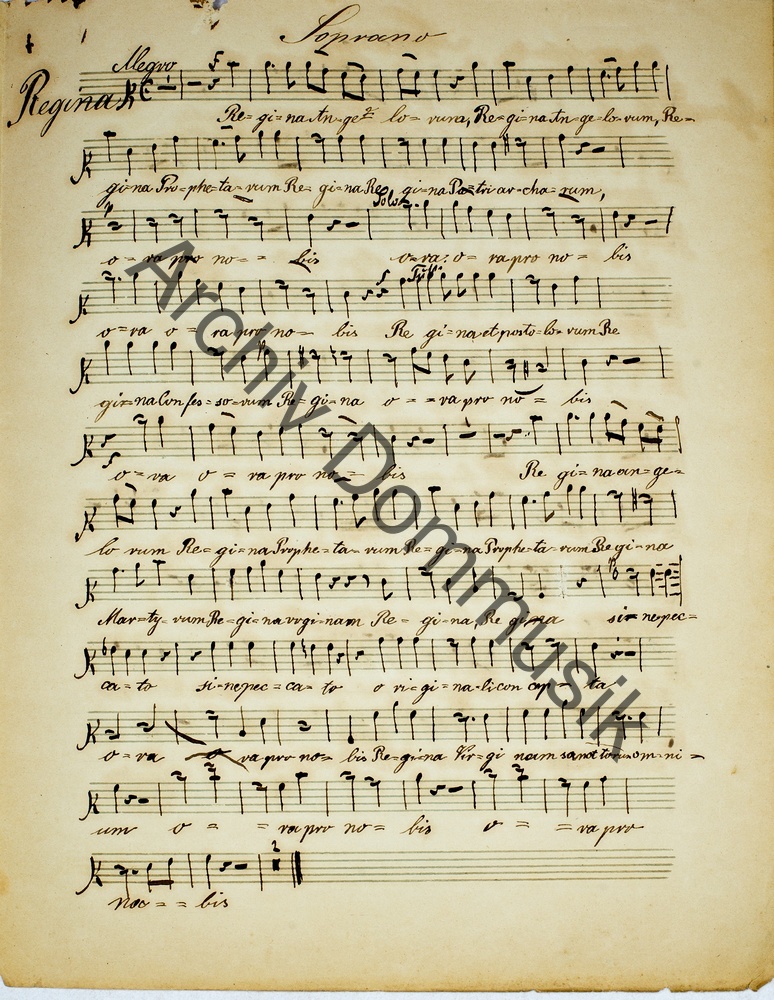 Soprano
Allegro
Regina
Re=gi=na An=ge= lo= rum, Re=gi=na An=ge=lo=rum, Re=
gi=na Pro=phe=ta=rum Re= gi=na Re gi=na Pa=tri ar=cha=rum,
Solo
o= ra pro no= = bis o=ra: o= ra pro no= bis
Tutti
o=ra o= ra pro no= bis Re gi=na et posto=lo=rum Re
gi=na Con fes=so=rum Re=gi=na o= =ra pro no= bis
o=ra o= ra pro no= bis Re gi=na an=ge=
lo rum Re=gi=na Prophe=ta=rum Re=gi=na Prophe=ta=rum Re gi=na
Mar=ty=rum Re=gi=na virgi=nam Re= gi=na, Re gi=na si=ne pec=
ca=to si=ne pec=ca=to o ri=gi=na=li con cep= ta
o=ra o ra pro no= bis Re=gi=na Vir=gi nam sanctorum om=ni=
um o= =ra pro no= bis o= =ra pro
2
no = = bis
Archiv Dommusik